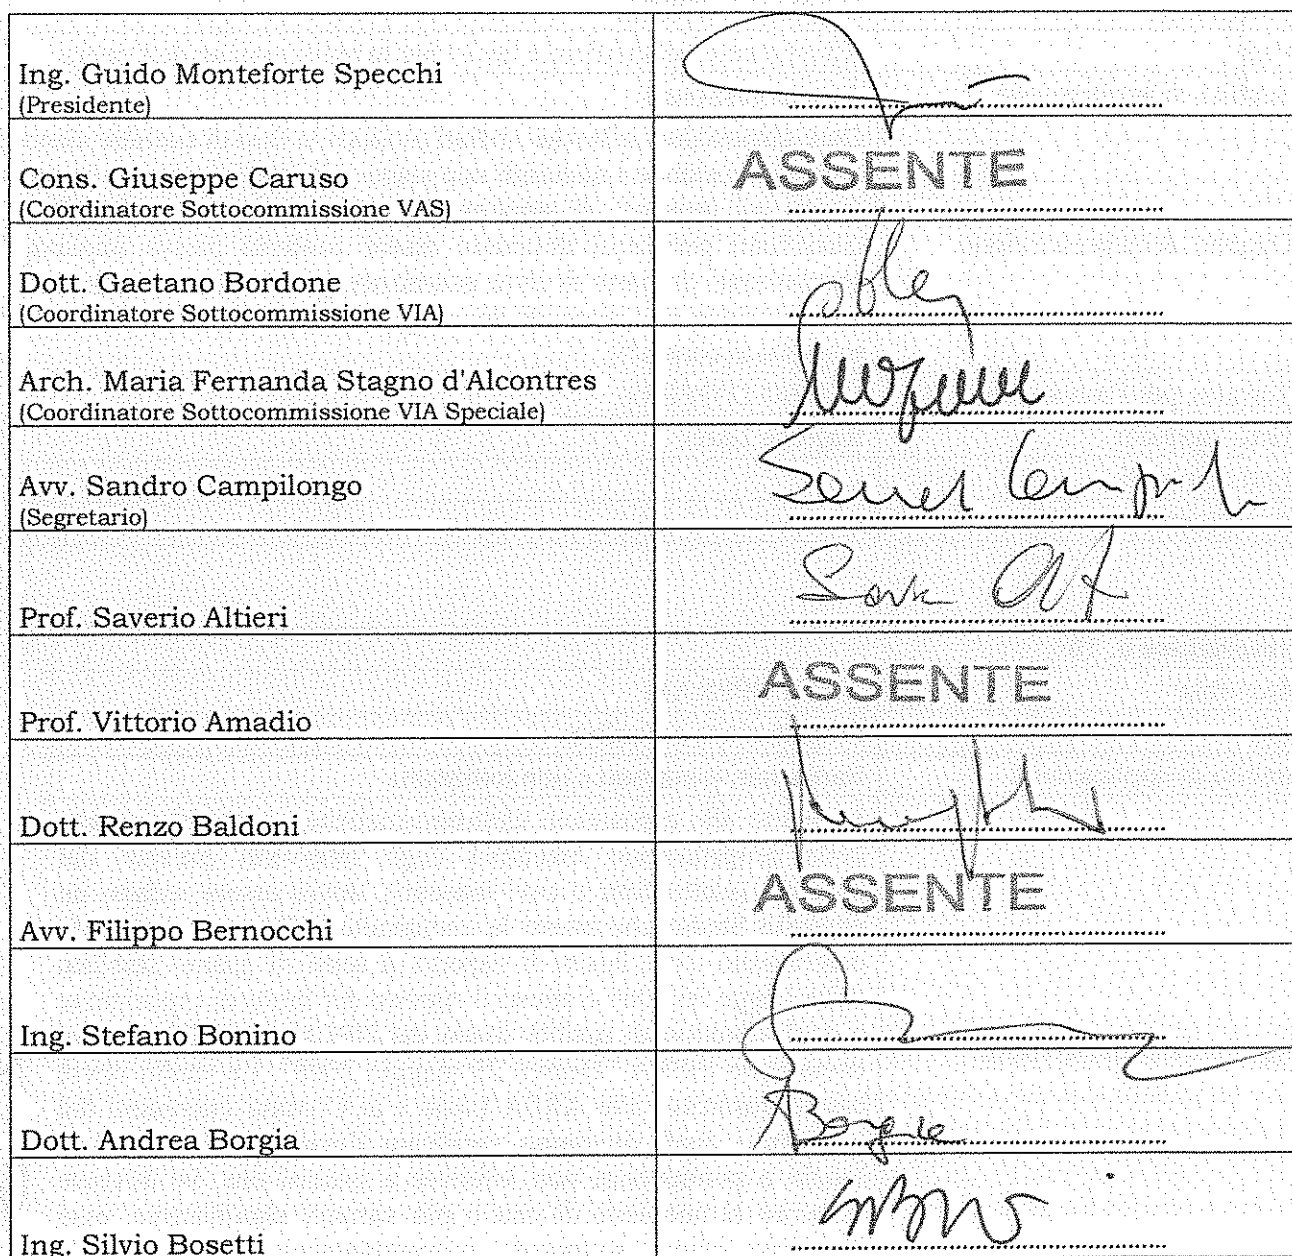 Ing. Guido Monteforte Specchi
(Presidente)
Cons. Giuseppe Caruso
(Coordinatore Sottocommissione VAS)
ASSENTE
Dott. Gaetano Bordone
(Coordinatore Sottocommissione VIA)
Arch. Maria Fernanda Stagno d'Alcontres
(Coordinatore Sottocommissione VIA Speciale)
Avv. Sandro Campilongo
(Segretario)
Prof. Saverio Altieri
Prof. Vittorio Amadio
ASSENTE
Dott. Renzo Baldoni
Avv. Filippo Bernocchi
ASSENTE
Ing. Stefano Bonino
Dott. Andrea Borgia
Ing. Silvio Bosetti